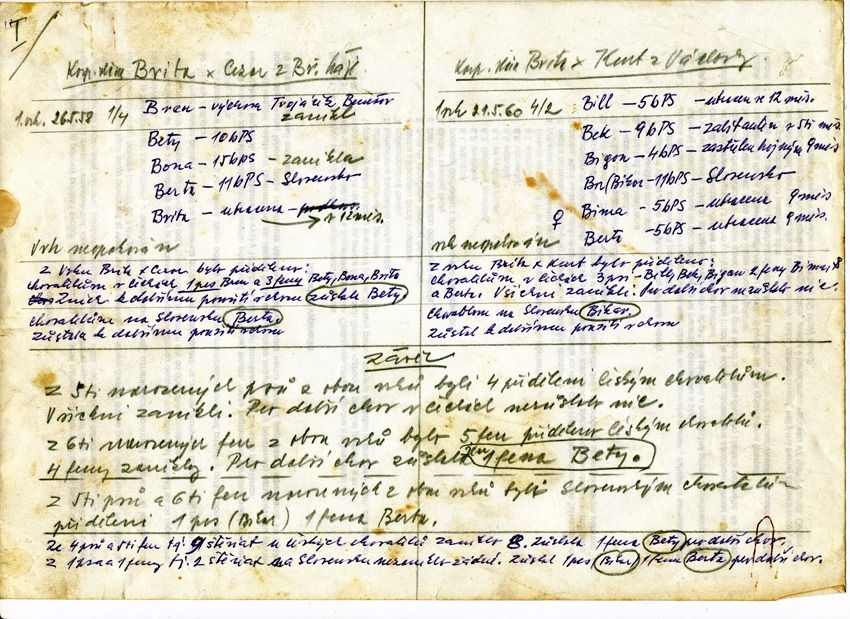 I
Kop. dvě Brita x Cezar z Bř. háj
1.vrh. 26.5.58 1/4 Bran – výchova Trojáček, Benešov
zanikl
Bety – 10bPS
Bona – 15bPS – zanikla
Berta – 11bPS – Slovensko
Brita – utracena – v 12 měs.
Vrh neopakován
Z vrhu Brita x Cezar bylo přiděleno:
chovatelům v Čechách 1 pes Bran a 3 feny Bety, Bona, Brita
Z nich k dalšímu použití v chovu zůstala Bety
chovatelům na Slovensku Berta.
zůstala k dalšímu použití v chovu
Brita x Kent z Václavky
1.vrh 21.5.60 4/2 Bill – 5bPS – utracen v 12 měs.
Bek – 9bPS – v 5ti měs
Bigon – 4bPS – zastřelen hajným 9 měs
Bor/Bikar – 11bPS – Slovensko
♀ Bima – 5bPS – utracena 9 měs
Berta – 5bPS – utracena 9 měs.
vrh neopakován
Z vrhu Brita x Kent bylo přiděleno:
chovatelům v Čechách 3 psi – Bill, Bek, Bigon 2 feny Bima
a Berta. Všichni zanikli. Pro další chov nezůstalo nic.
chovatelům na Slovensku Bikar.
zůstal k dalšímu použití v chovu
Závěr
Z 5ti narozených psů z obou vrhů byli 4 přiděleni českým chovatelům.
Všichni zanikli. Pro další chov v Čechách nezůstalo nic.
Z 6ti narozených fen z obou vrhů bylo 5 fen přiděleno českým chovatelů.
4 feny zanikly. Pro další chov zůstala jen 1 fena Bety.
Z 5ti psů a 6ti fen narozených z obou vrhů byli Slovenským chovatelům
přiděleni 1 pes (Bikar) 1 fena Berta.
Ze 4 psů a 5ti fen tj. 9 štěňat u českých chovatelů zaniklo 8. Zůstala 1 fena Bety pro další chov.
Z 1 psa a 1 feny tj. 2 štěňat na Slovensku nezaniklo žádné. Zůstal 1 pes Bikar 1 fena Berta pro další chov.